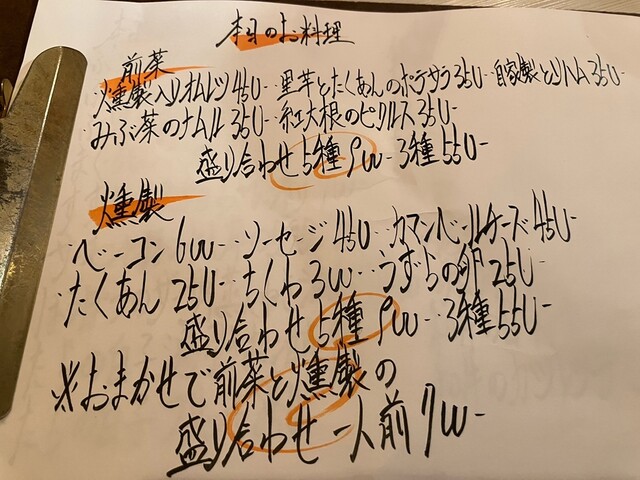 本日のお料理
前菜
燻製入りオムレツ450- 里芋とたくあんのポテサラ350- 自家製とりハム350-
みぶ菜のナムル350- 紅大根のピクルス350-
盛り合わせ5種900- 3種550-
燻製
ベーコン600- ソーセージ450- カマンベールチーズ450-
たくあん250- ちくわ300- うずらの卵250-
盛り合わせ5種900- 3種550-
※おまかせで前菜と燻製の
盛り合わせ一人前700-